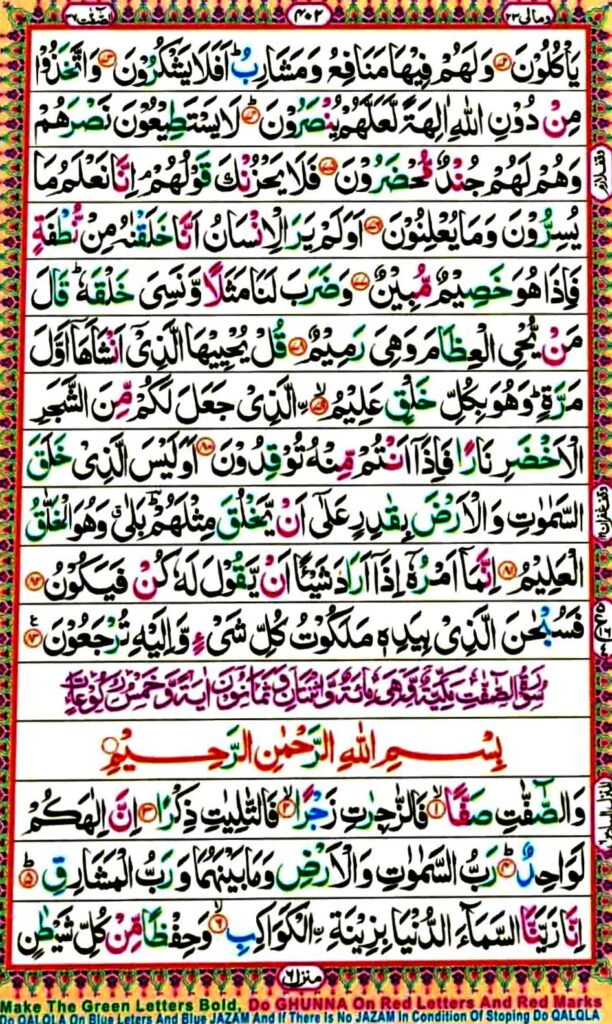 وَمَالِیَ ٢٣
٤٠٢
الصّٰٓفّٰت ٣٧
یَاْكُلُوْنَ ۝٧٢ وَلَهُمْ فِیْهَا مَنَافِعُ وَمَشَارِبُ ؕ اَفَلَا یَشْكُرُوْنَ ۝٧٣ وَاتَّخَذُوْا
مِنْ دُوْنِ اللّٰهِ اٰلِهَةً لَّعَلَّهُمْ یُنْصَرُوْنَ ۝٧٤ؕ لَا یَسْتَطِیْعُوْنَ نَصْرَهُمْ
وَهُمْ لَهُمْ جُنْدٌ مُّحْضَرُوْنَ ۝٧٥ فَلَا یَحْزُنْكَ قَوْلُهُمْ ۘ اِنَّا نَعْلَمُ مَا
یُسِرُّوْنَ وَمَا یُعْلِنُوْنَ ۝٧٦ اَوَلَمْ یَرَ الْاِنْسَانُ اَنَّا خَلَقْنٰهُ مِنْ نُّطْفَةٍ
فَاِذَا هُوَ خَصِیْمٌ مُّبِیْنٌ ۝٧٧ وَضَرَبَ لَنَا مَثَلًا وَّنَسِیَ خَلْقَهٗ ؕ قَالَ
مَنْ یُّحْیِ الْعِظَامَ وَهِیَ رَمِیْمٌ ۝٧٨ قُلْ یُحْیِیْهَا الَّذِیْۤ اَنْشَاَهَاۤ اَوَّلَ
مَرَّةٍ ؕ وَهُوَ بِكُلِّ خَلْقٍ عَلِیْمُ ۝٧٩ۙ ۨالَّذِیْ جَعَلَ لَكُمْ مِّنَ الشَّجَرِ
الْاَخْضَرِ نَارًا فَاِذَاۤ اَنْتُمْ مِّنْهُ تُوْقِدُوْنَ ۝٨٠ اَوَلَیْسَ الَّذِیْ خَلَقَ
السَّمٰوٰتِ وَالْاَرْضَ بِقٰدِرٍ عَلٰۤی اَنْ یَّخْلُقَ مِثْلَهُمْ ؕ بَلٰی ۗ وَهُوَ الْخَلّٰقُ
الْعَلِیْمُ ۝٨١ اِنَّمَاۤ اَمْرُهٗۤ اِذَاۤ اَرَادَ شَیْـًٔا اَنْ یَّقُوْلَ لَهٗ كُنْ فَیَكُوْنُ ۝٨٢
فَسُبْحٰنَ الَّذِیْ بِیَدِهٖ مَلَكُوْتُ كُلِّ شَیْءٍ وَّاِلَیْهِ تُرْجَعُوْنَ ۝٨٣
سُوْرَةُ الصّٰٓفّٰتِ مَكِّیَّةٌ وَّهِیَ مِائَةٌ وَّاثْنَتَانِ وَثَمَانُوْنَ اٰیَةً وَّخَمْسُ رُكُوْعَاتٍ
بِسْمِ اللّٰهِ الرَّحْمٰنِ الرَّحِیْمِ
وَالصّٰٓفّٰتِ صَفًّا ۝١ۙ فَالزّٰجِرٰتِ زَجْرًا ۝٢ۙ فَالتّٰلِیٰتِ ذِكْرًا ۝٣ۙ اِنَّ اِلٰهَكُمْ
لَوَاحِدٌ ۝٤ؕ رَبُّ السَّمٰوٰتِ وَالْاَرْضِ وَمَا بَیْنَهُمَا وَرَبُّ الْمَشَارِقِ ۝٥ؕ
اِنَّا زَیَّنَّا السَّمَآءَ الدُّنْیَا بِزِیْنَةِ ۨالْكَوَاكِبِ ۝٦ۙ وَحِفْظًا مِّنْ كُلِّ شَیْطٰنٍ
منزل ٦
Make The Green Letters Bold, Do GHUNNA On Red Letters And Red Marks
Do QALQLA On Blue Leters And Blue JAZAM And If There Is No JAZAM In Condition Of Stoping Do QALQLA